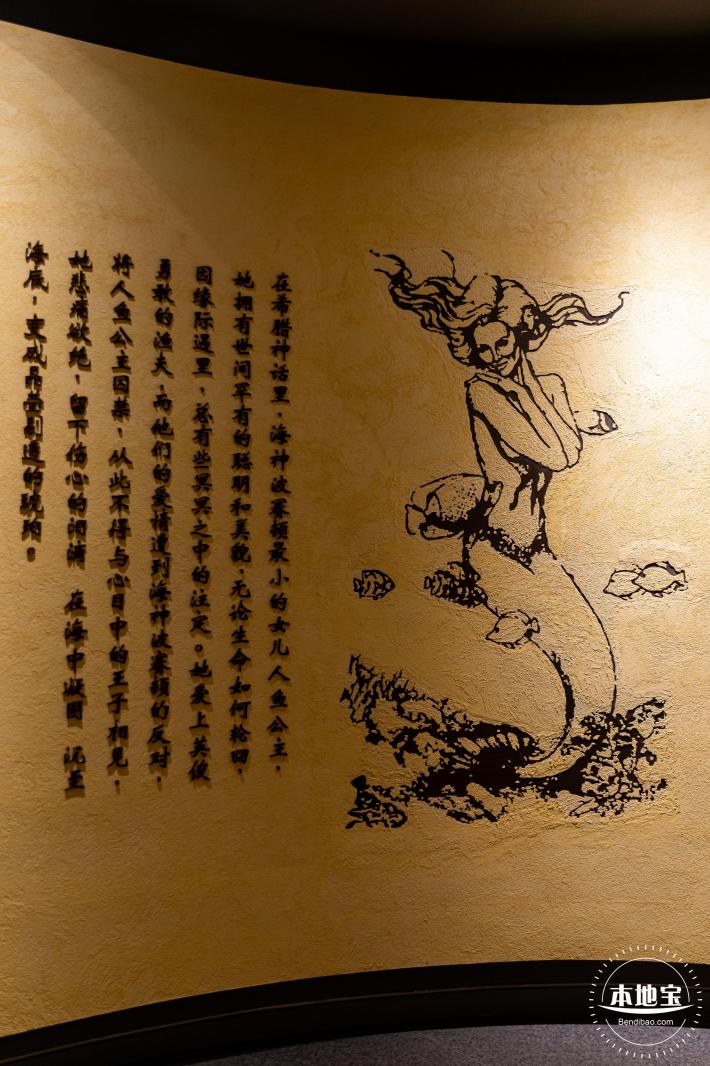 在希腊神话里，海神波赛顿最小的女儿人鱼公主，
她拥有世间罕有的聪明和美貌，无论生命如何轮回，
因缘际遇里，总有些冥冥之中的注定。她爱上英俊
勇敢的渔夫，而他们的爱情遭到海神波赛顿的反对，
将人鱼公主囚禁，从此不得与心目中的王子相见，
她悲痛欲绝，留下伤心的泪滴 在海中凝固 沉至
海底，变成晶莹剔透的琥珀。
本地宝
Bendibao.com